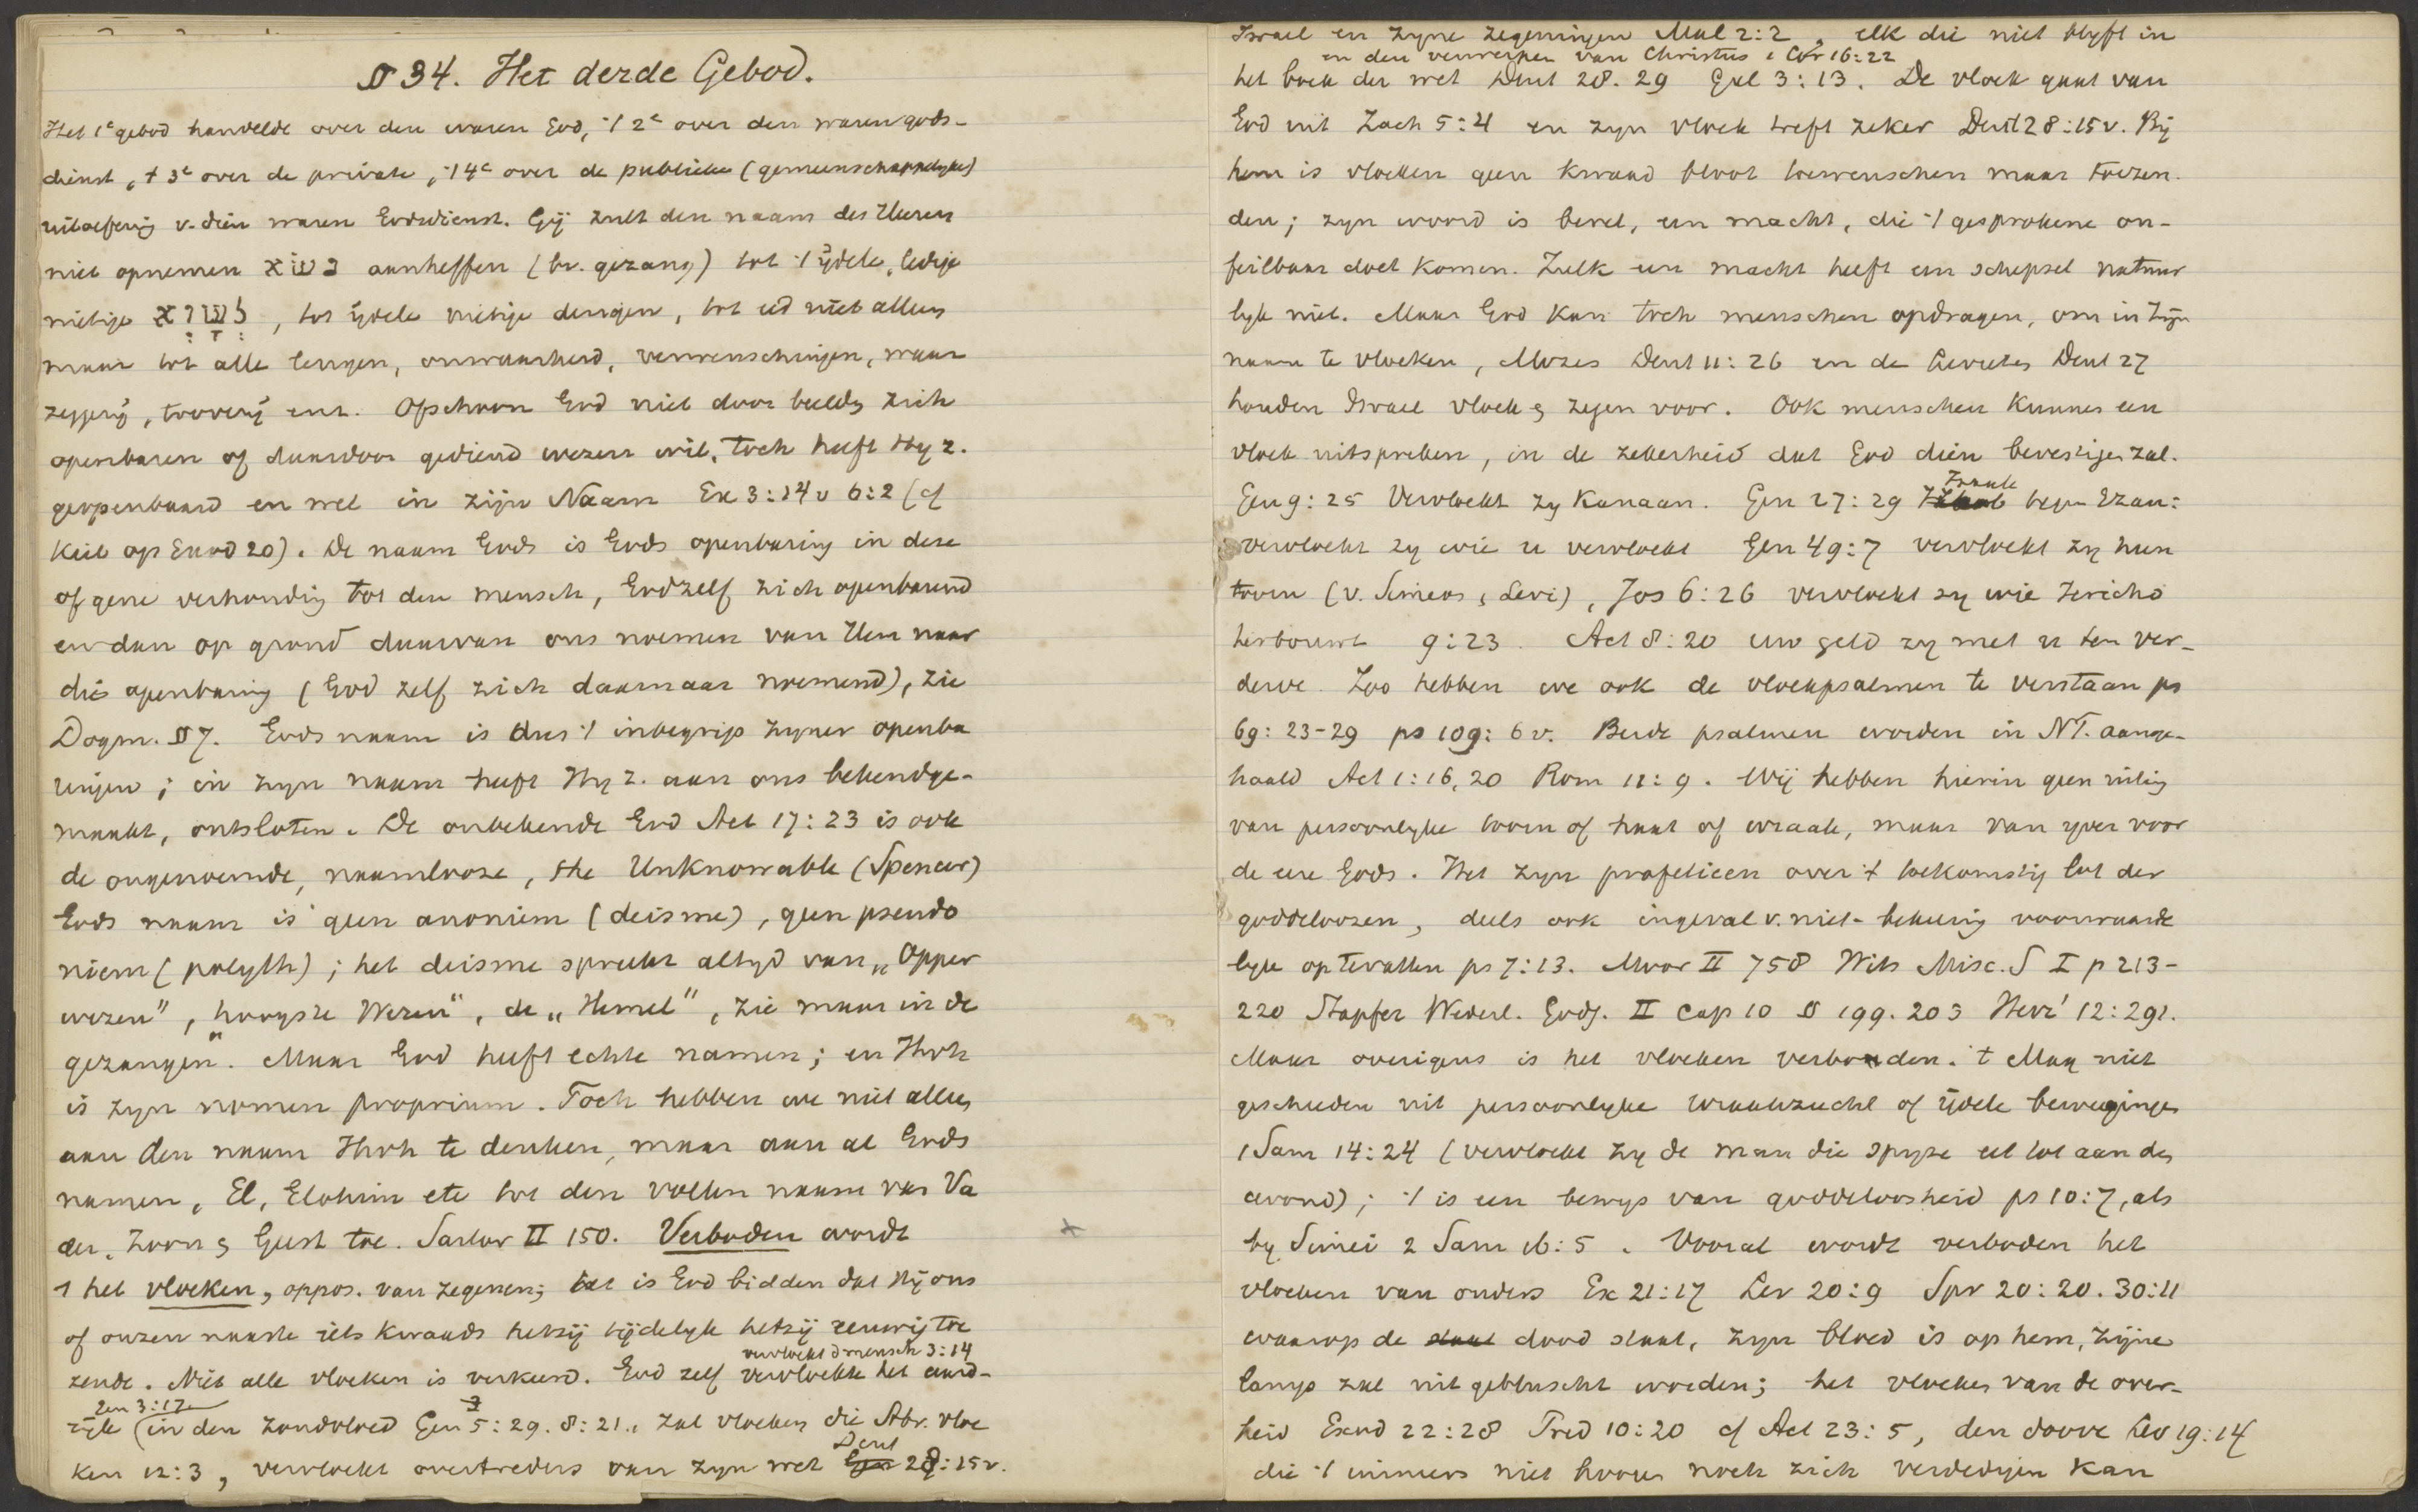 § 34. Het derde Gebod.
Het 1e gebod handelde over den waren God, 't 2e over den waren gods-
dienst, 't 3e over de private, 't 4e over de publieke (gemeenschappelyke)
uitoefening v. dien waren Godsdienst. Gij zult den naam des Heeren
niet opnemen נשא aanheffen (bv. gezang) tot 't ijdele, ledige
nietige לשוא, tot ijdele nietige dingen, tot eed niet alleen
maar tot alle leugen, onwaarheid, verwenschingen, waar
zeggerij, tooverij enz. Ofschoon God niet door beelden zich
openbaren of daardoor gediend wezen wil, toch heeft Hy z.
geopenbaard en wel in zijn Naam Ex 3:14v 6:2 (cf
Keil op Exod 20). De naam Gods is Gods openbaring in deze
of gene verhouding tot den mensch, God zelf zich openbarend
en dan op grond daarvan ons noemen van Hem naar
die openbaring (God zelf zich daarnaar noemend), zie
Dogm. § 7. Gods naam is dus 't inbegrip zyner openba
ringen; in zyn naam heeft Hy z. aan ons bekendge-
maakt, ontsloten. De onbekende God Act 17:23 is ook
de ongenoemde, naamlooze, the Unknowable (Spencer)
Gods naam is geen anoniem (deisme), geen pseudo
niem (polyth); het deisme spreekt altyd van „Opper
wezen", „hoogste Wezen", de „Hemel", zie maar in de
gezangen. Maar God heeft echte namen; en Jhvh
is zyn nomen proprium. Toch hebben we niet alleen
aan den naam Jhvh te denken, maar aan al Gods
namen, El, Elohim etc tot den vollen naam van Va
der, Zoon & Geest toe. Sartor II 150. Verboden wordt
1 het vloeken, oppos. van zegenen; dat is God bidden dat Hij ons
of onzen naaste iets kwaads hetzij tijdelyk hetzij eeuwig toe
vervloekt d mensch 3:14
zende. Niet alle vloeken is verkeerd. God zelf vervloekte het aard-
Gen 3:17
ryk (in den zondvloed Gen 5:29. 8:21., zal vloeken die Abr. vloe
Deut
ken 12:3, vervloekt overtreders van zyn wet Gen 28:15v.
Israel en zyne zegeningen Mal 2:2, elk die niet blyft in
en den verwerper van Christus 1 Cor 16:22
het boek der wet Deut 28. 29 Gal 3:13. De vloek gaat van
God uit Zach 5:4 en zyn vloek treft zeker Deut 28:15v. Bij
hem is vloeken geen kwaad bloot toewenschen maar toezen-
den; zyn woord is bevel, een macht, die 't gesprokene on-
feilbaar doet komen. Zulk een macht heeft een schepsel natuur
lyk niet. Maar God kan toch menschen opdragen, om in Zijn
naam te vloeken, Mozes Deut 11:26 en de Levieten Deut 27
houden Israel vloek & zegen voor. Ook menschen kunnen een
vloek uitspreken, in de zekerheid dat God dien bevestigen zal.
Izaak
Gen 9:25 Vervloekt zy Kanaan. Gen 27:29 Jakob tegen Ezau:
vervloekt zy wie u vervloekt Gen 49:7 vervloekt zy hun
toorn (v. Simeon & Levi), Jos 6:26 vervloekt zy wie Jericho
herbouwt 9:23. Act 8:20 uw geld zy met u ten ver-
derve. Zoo hebben we ook de vloekpsalmen te verstaan ps
69:23-29 ps 109:6v. Beide psalmen worden in NT. aange-
haald Act 1:16,20 Rom 11:9. Wij hebben hierin geen uiting
van persoonlyke toorn of haat of wraak, maar van yver voor
de eere Gods. Het zyn profetieen over 't toekomstig lot der
goddeloozen, deels ook ingeval v. niet-bekeering voorwaarde
lyk op te vatten ps 7:13. Moor II 758 Wits Misc. S I p 213-
220 Stapfer Wederl. Godg. II Cap 10 § 199. 203 Herz' 12:291.
Maar overigens is het vloeken verboden. 't Mag niet
geschieden uit persoonlyke wraakzucht of ijdele beweginge
1 Sam 14:24 (vervloekt zy de man die spyze eet tot aan den
avond); 't is een bewys van goddeloosheid ps 10:7, als
by Simei 2 Sam 16:5. Vooral wordt verboden het
vloeken van ouders Ex 21:17 Lev 20:9 Spr 20:20. 30:11
waarop de staat dood staat, zyn bloed is op hem, zijne
lamp zal uit gebluscht worden; het vloeken van de over-
heid Exod 22:28 Pred 10:20 cf Act 23:5, den doove Lev 19:14
die 't immers niet hooren noch zich verdedigen kan